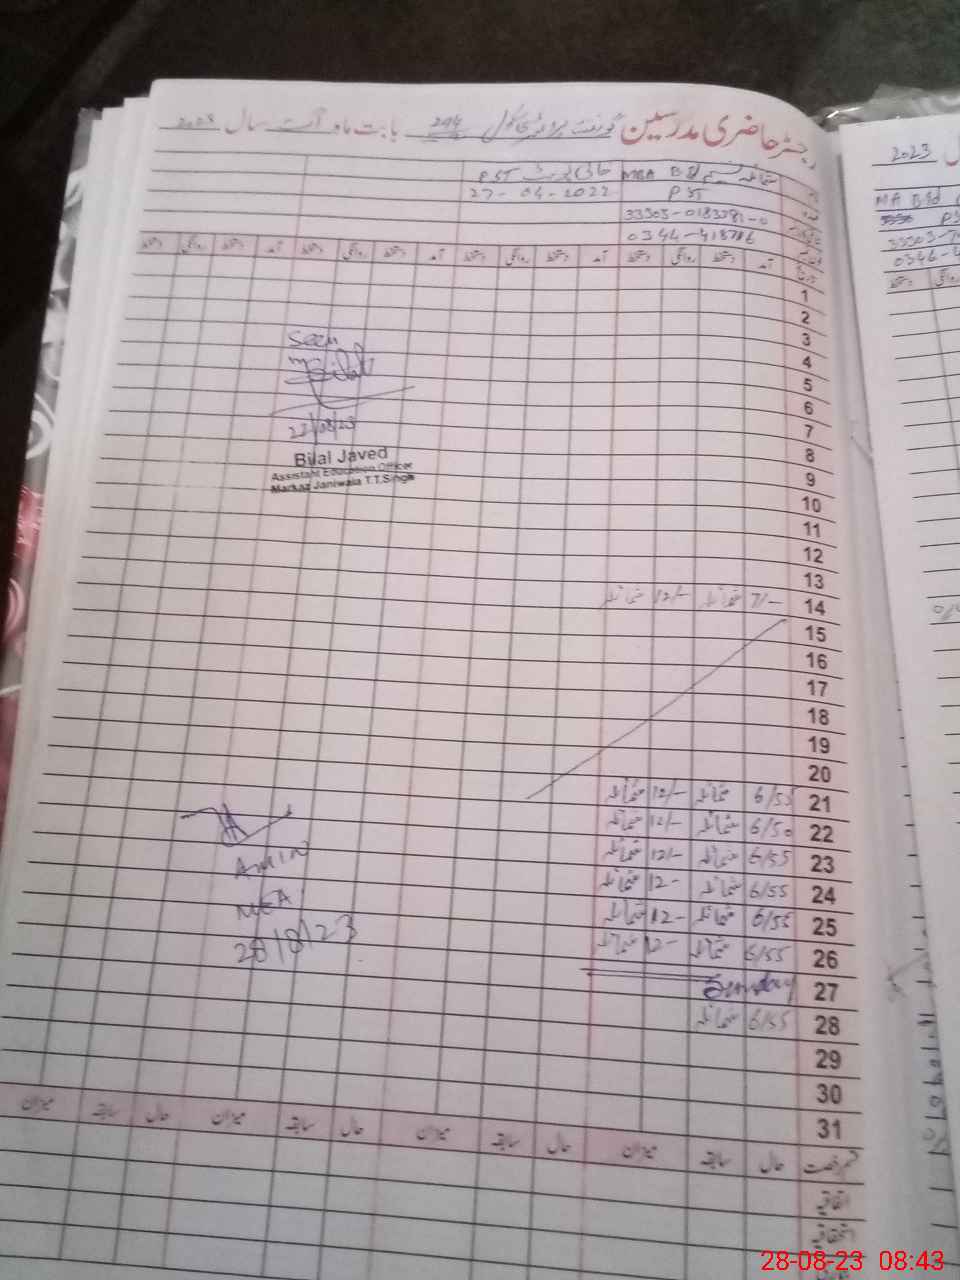 رجسٹر حاضری مدرسین گورنمنٹ سکول 294 بابت ماہ اگست سال 2023
شمائلہ نسیم MBA B Ed خالی پوسٹ PST
PST 27-04-2022
33303-0183381-0
آمد دستخط روانگی دستخط آمد دستخط روانگی دستخط آمد دستخط روانگی دستخط آمد دستخط روانگی دستخط
1
2
3
4
5
6
7
8
9
10
11
12
13
14 7/- شمائلہ 12/- شمائلہ
15
16
17
18
19
20
21 6/55 شمائلہ 12/- شمائلہ
22 6/50 شمائلہ 12/- شمائلہ
23 6/55 شمائلہ 12/- شمائلہ
24 6/55 شمائلہ 12- شمائلہ
25 6/55 شمائلہ 12- شمائلہ
26 6/55 شمائلہ 12- شمائلہ
27 Sunday
28 6/55 شمائلہ
29
30
31
قسم رخصت حال سابقہ میزان حال سابقہ میزان حال سابقہ میزان حال سابقہ میزان
اتفاقیہ
استحقاقیہ
Seen
Bilal
22/08/23
Bilal Javed
Assistant Education Officer
Markaz Janiwala T.T.Singh
Amin
MEA
28/8/23
2023
MA BEd
PS
0346-4
28-08-23 08:43